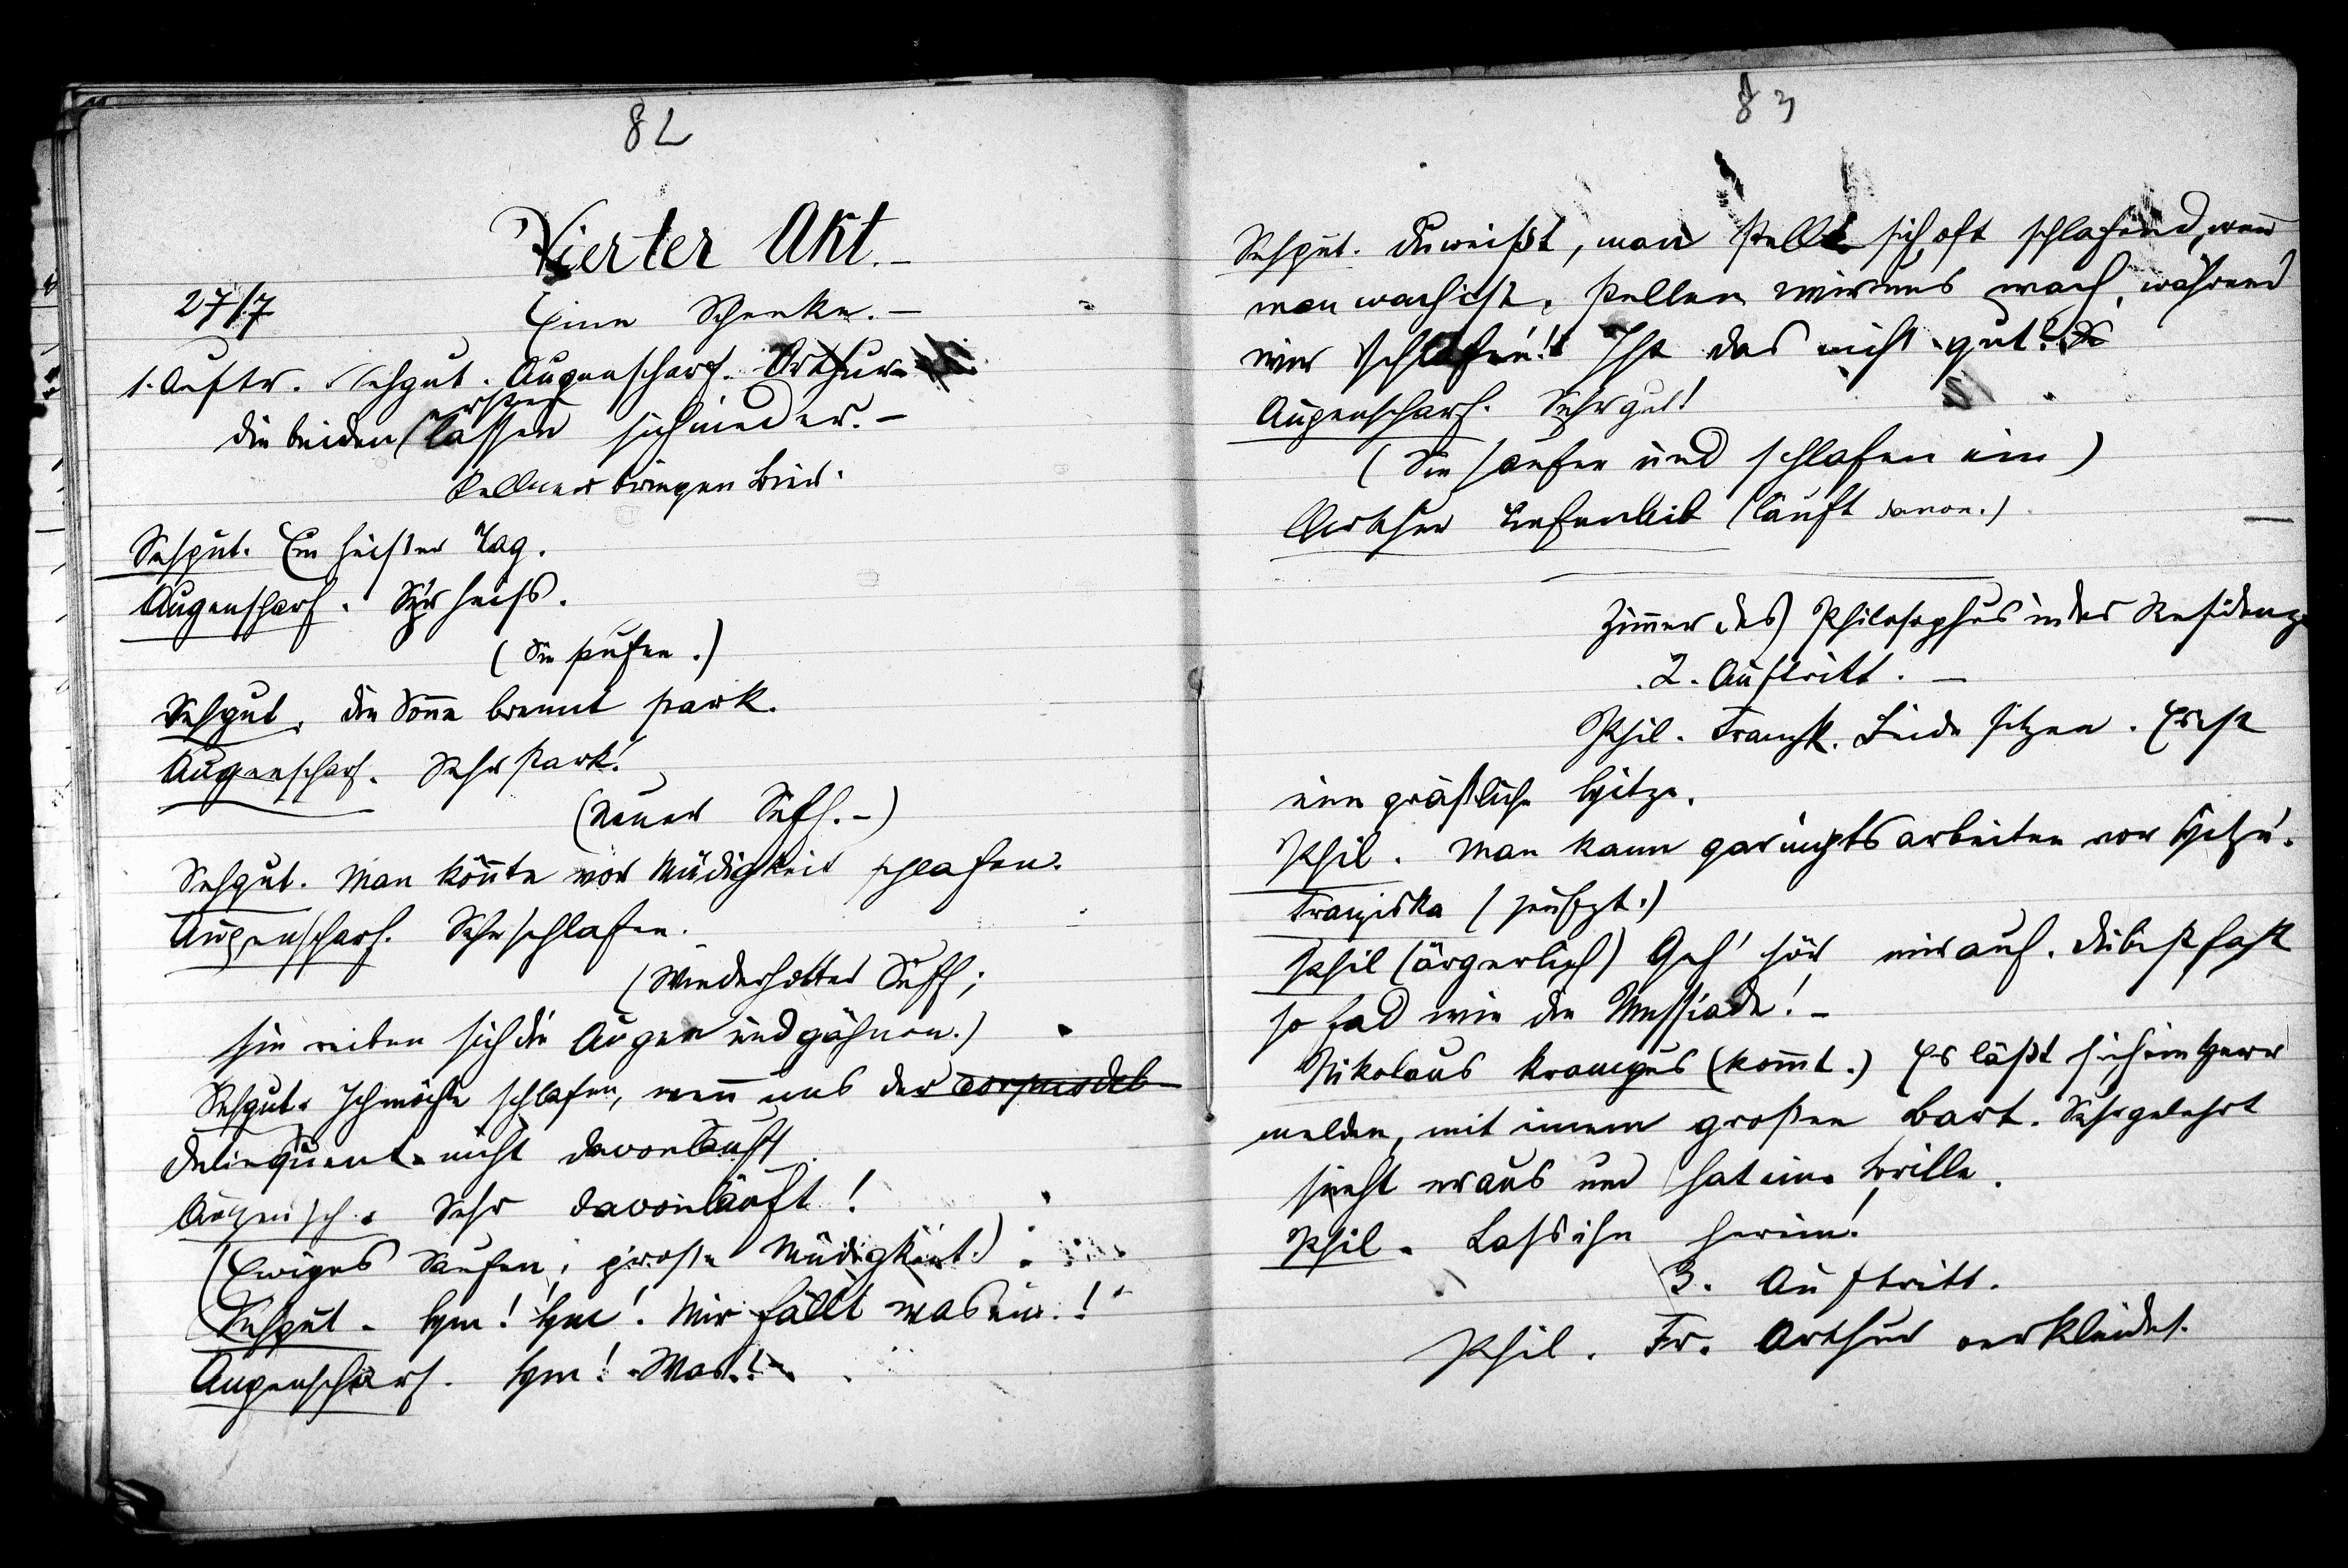 82
Vierter Akt.–
27/7
Eine Schenke.–
1. Auftr. Sehgut. Augenscharf. Arthur.
ersten
die beiden lassen sich nieder.–
Kellner bringen Bier.
Sehgut. Ein heißer Tag.
Augenscharf. Sehr heiß.
(Sie saufen.)
Sehgut. Die Sonne brennt stark.
Augenscharf. Sehr stark!
(Neuer Suff.–)
Sehgut. Man könnte vor Müdigkeit schlafen.
Augenscharf. Sehr schlafen.
(Wiederholter Suff;
sie reiben sich die Augen und gähnen.)
Sehgut. Ich möchte schlafen, wenn uns der corpusdel
delinquent nicht davonläuft
Augensch. Sehr davonläuft!
(Ewiges Saufen; große Müdigkeit.)
Sehgut. Hm! Hm! Mir fällt was ein.!
Augenscharf. Hm! Was.!
83
Sehgut. Du weißt, man stellt sich oft schlafend, wenn
man wach ist. Stellen wir uns wach, während
wir schlafen! Ist das nicht gut?
Augenscharf. Sehr gut!
(Sie saufen und schlafen ein)
Arthur Tiefenleib (läuft davon.)
Zimmer des Philosophus in der Residenz
2. Auftritt.–
Phil. Franzisk. Beide sitzen. Es ist
eine gräßliche Hitze.
Phil. Man kann gar nichts arbeiten vor Hitze.
Franziska (seufzt.)
Phil (ärgerlich) Geh' hör mir auf. Du bist fast
so fad wie die Messiade!–
Nikolaus Krampus (kommt.) Es läßt sich ein Herr
melden, mit einem großen Bart. Sehr gelehrt
sieht er aus und hat eine Brille.
Phil. Lass ihn herein!
3. Auftritt.
Phil. Fr. Arthur verkleidet.